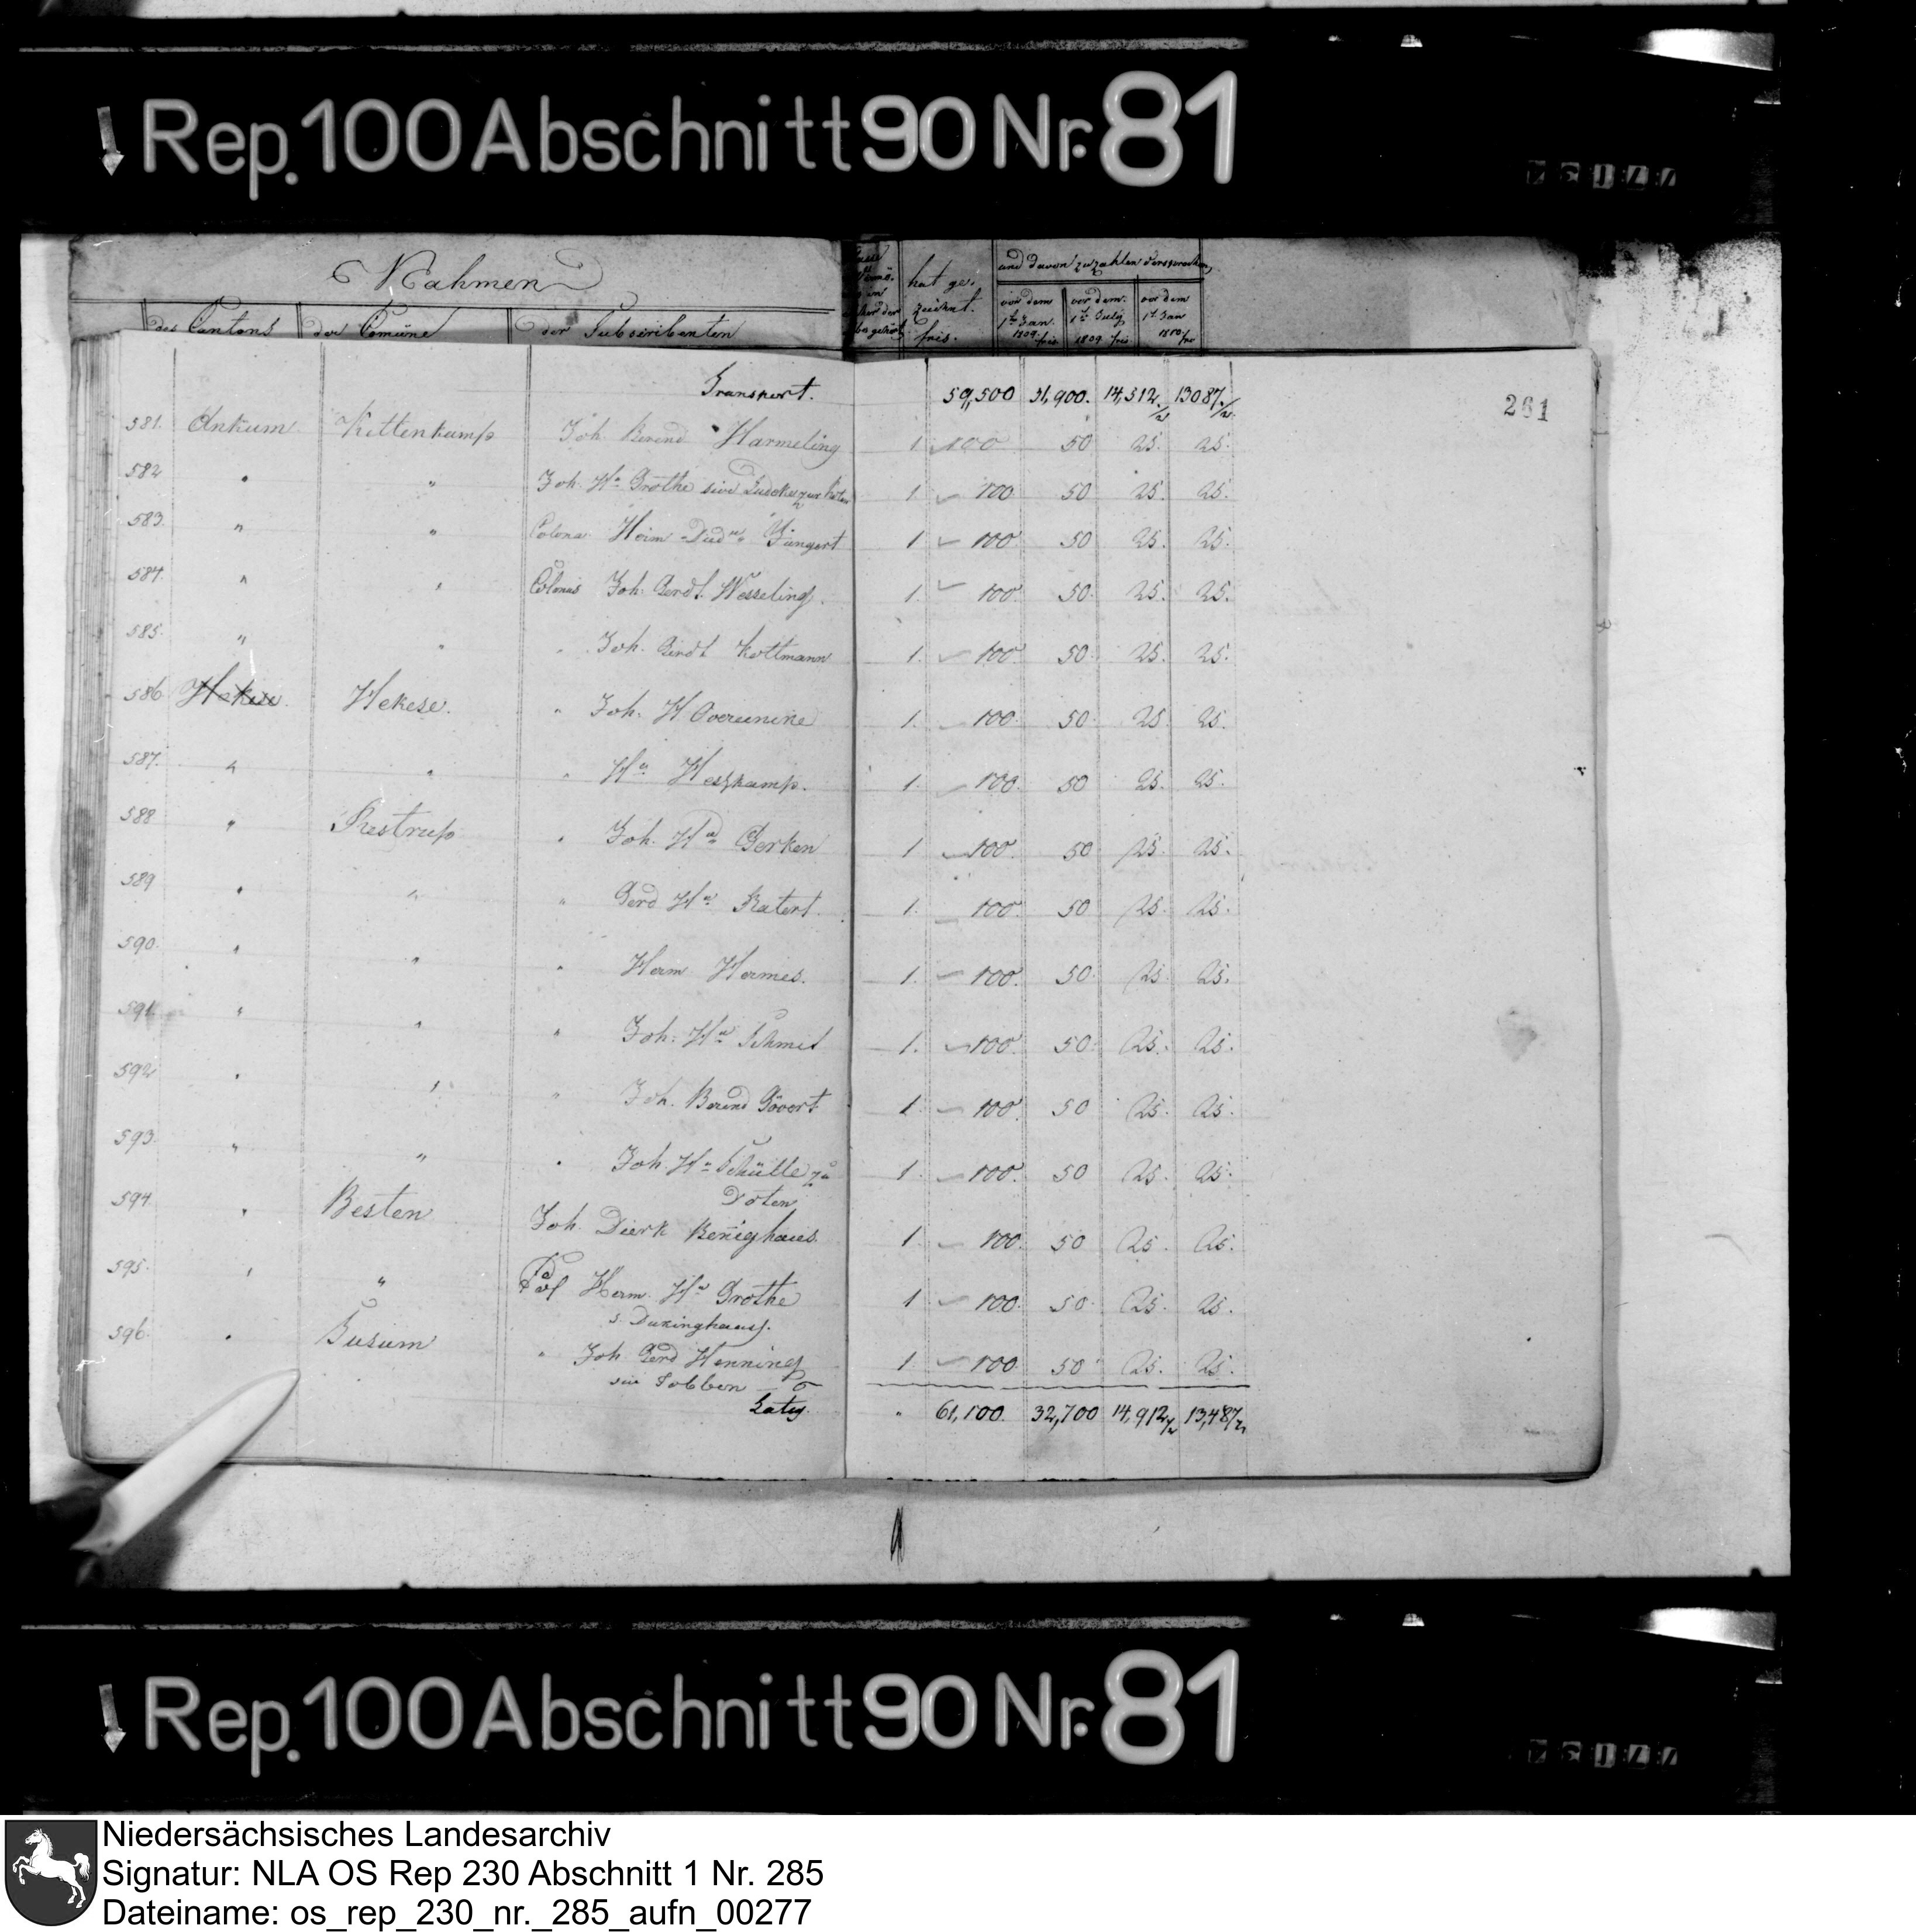 Rep. 100 Abschnitt 90 Nr. 81
Nahmen
des Cantons der Comüne der Subscribenten
hat ge-
zeichnet.
fris.
und davon zu zahlen versprochen,
vor dem
1t Jan.
1809. fris
vor dem
1t July
1809 fris
vor dem
1t Jan
1810. fr
261
Transport. 59,500 31,900. 14,512 1/2 13087 1/2
581. Ankum Kettenkamp Joh. Berend Harmeling 1 100 50 25. 25.
582 " " Joh. Hn Grothe sive 1. 100 50 25. 25.
583. " " Colona Heim Died Jüngert 1 100 50 25. 25.
584. " " Colonus Joh. Gerdt Wesseling. 1. 100 50. 25. 25.
585. " " " Joh. Gerdt Kottmann 1. 100. 50. 25. 25.
586 Hekese Hekese. " Joh. H 1. 100. 50 25 25.
587. " " " Hn Heskamp. 1. 100. 50 25. 25.
588 " Restrup " Joh. Hn Gerken 1 100. 50 25 25.
589 " " " Gerd Hn Ratert. 1. 100. 50 25. 25.
590. " " " Herm Hermes. 1. 100. 50. 25 25.
591. " " " Joh. Hn Schmit 1. 100. 50. 25. 25.
592 " " " Joh. Berend Gövert 1. 100. 50 25. 25.
593. " " " Joh. Hn Schütte zu 1. 100. 50 25. 25.
Doten
594. " Besten Joh. Dierk Benighaus. 1. 100. 50 25. 25.
595. " " Col Herm. Hn Grothe 1 100. 50. 25. 25.
s. Duxinghaus.
596. " Susum " Joh. Gerd Henning 1 100. 50 25. 25.
sive Tobben
Latus. " 61,100. 32,700 14,912 1/2 13,487 1/2
Rep. 100 Abschnitt 90 Nr. 81
Niedersächsisches Landesarchiv
Signatur: NLA OS Rep 230 Abschnitt 1 Nr. 285
Dateiname: os_rep_230_nr._285_aufn_00277